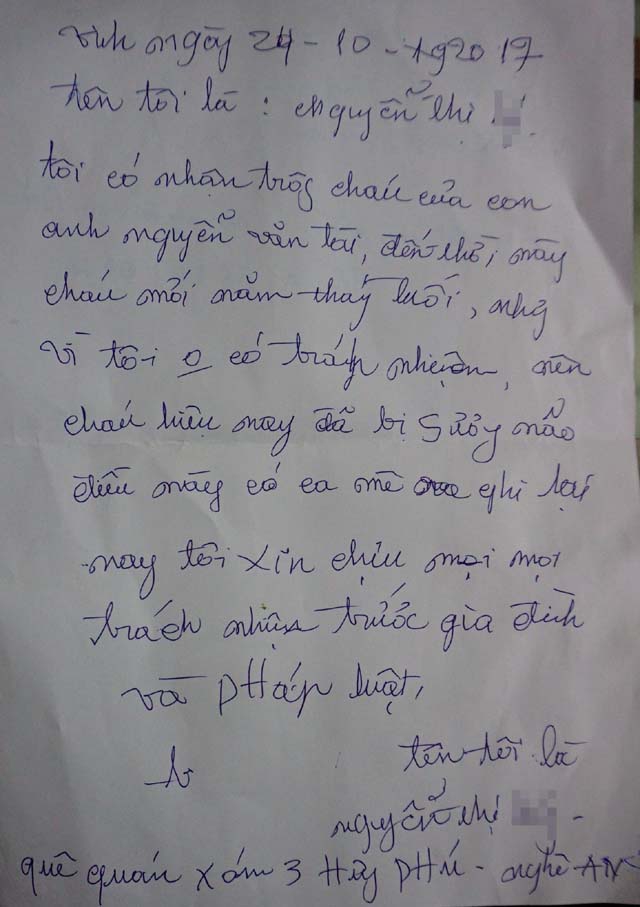 Vinh ngày 24-10-2017
tên tôi là : Nguyễn thị
tôi có nhận trôg cháu của con
anh nguyễn văn tài, đến thời này
cháu mới năm thág tuổi, nhg
Vì tôi o có trách nhiệm, nên
cháu hiệu nay đã bị sưởy não
điều này có ca mê ghi lại
nay tôi xin chịu mọi mọi
trách nhiệm trước gia đình
và pHáp luật,
tên tôi là
nguyễn thị -
quê quán xóm 3 Hậy pHú - nghệ-AN